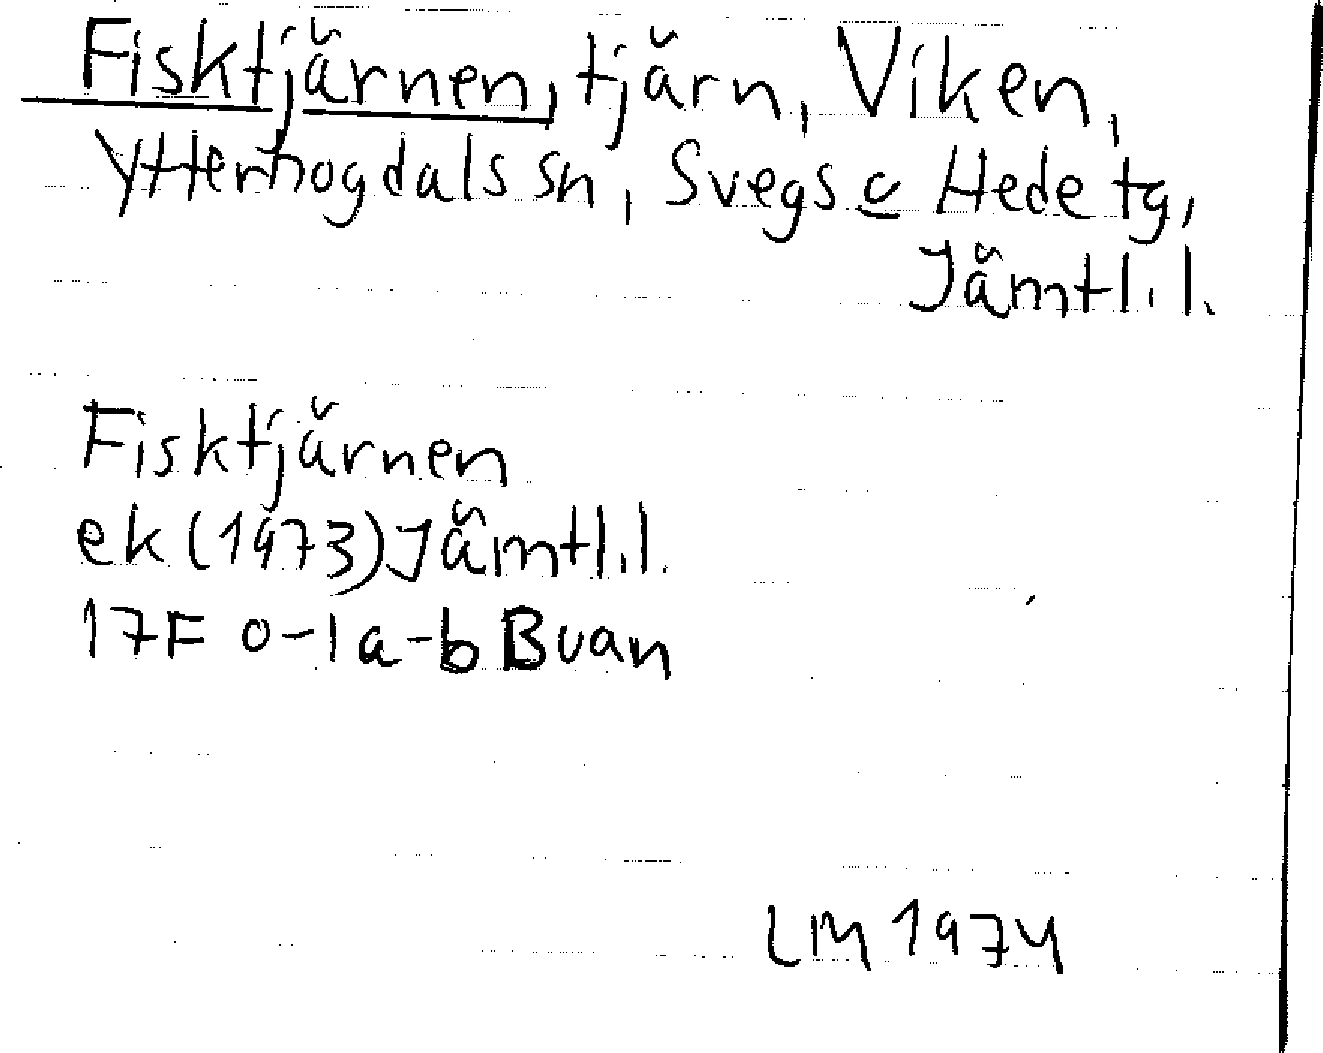 Fisktjärnen, tjärn, Viken,
Ytterhogdals sn, Svegs o Hede tg,
Jämtl. l.
Fisktjärnen
ek (1973) Jämtl. l.
17F 0-1 a-b Buan
LM 1974